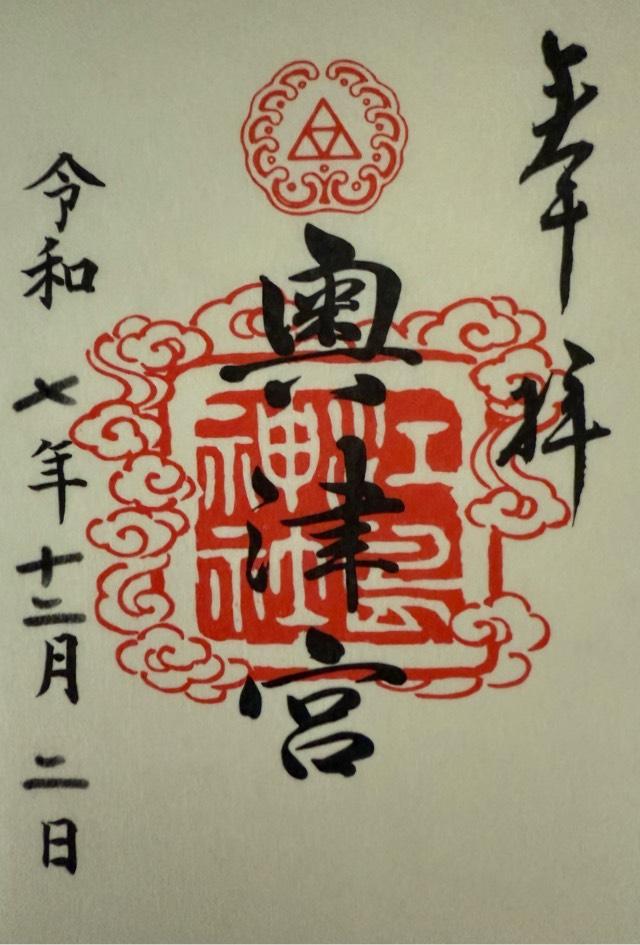 奉拝
奥津宮
江島
神社
令和 七年 十二月 二日